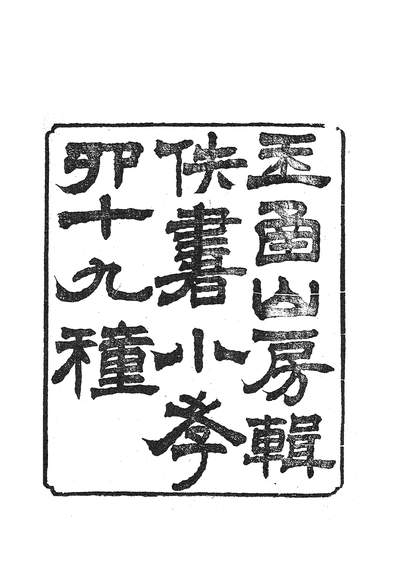 玉函山房輯
佚書小學
四十九種